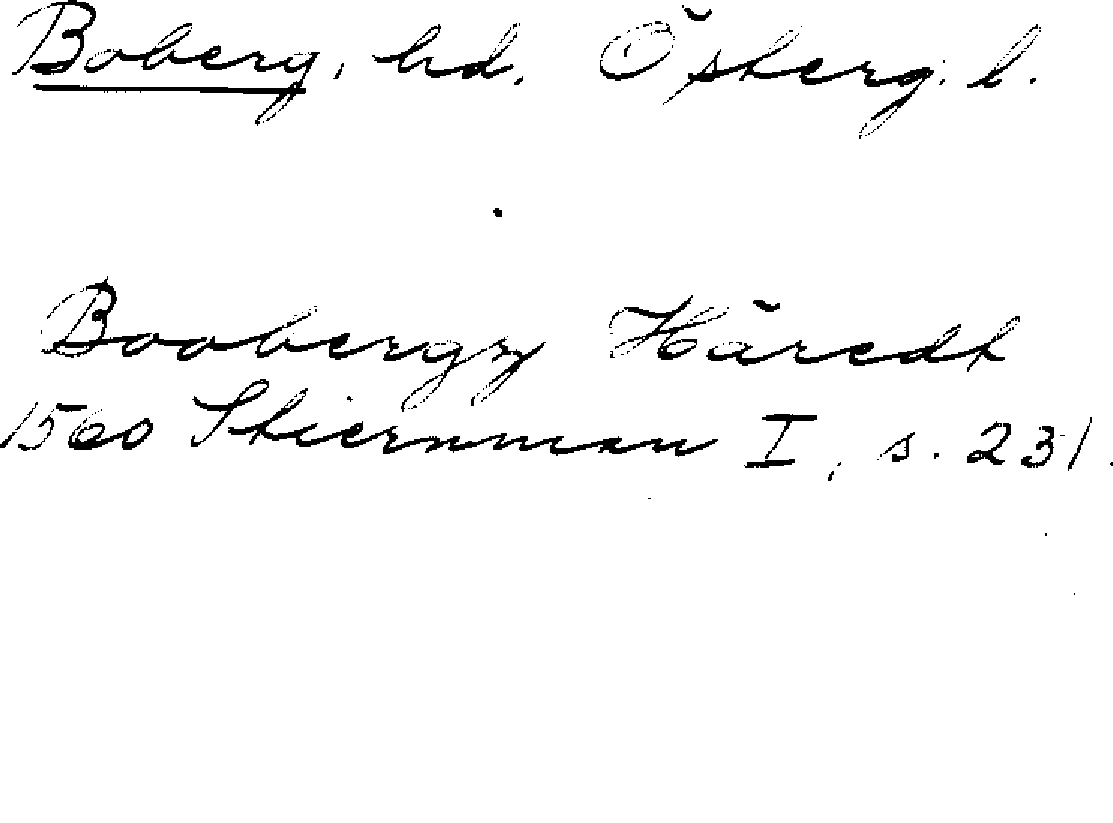 Boberg, hd. Österg. l.
Boobergz Häredt
1560 Stiernman I, s. 231.